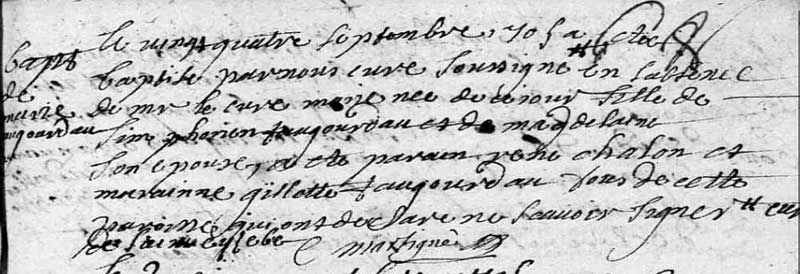 bapt
de
marie
augourdau
le vingt quatre septembre 1705 a esté
baptisé par nous curé soussigné en labsence
de mr le curé marie nee de ce jour fille de
simphorien augourdau et de magdelaine
son epouse, a eté parain rené chalon et
marainne gillette augourdau tous de cette
paroisse qui ont declare ne scavoir signer
martigné